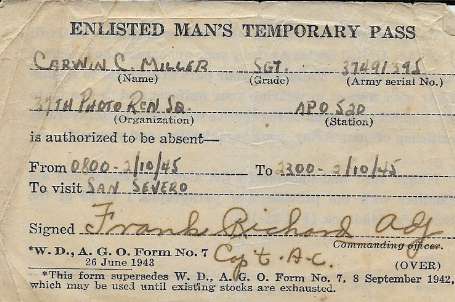 ENLISTED MAN'S TEMPORARY PASS
CARWIN C. MILLER SGT. 37491395
(Name) (Grade) (Army serial No.)
37TH PHOTO RCN SQ. APO 520
(Organization) (Station)
is authorized to be absent—
From 0800-2/10/45 To 2300-2/10/45
To visit SAN SEVERO
Signed Frank Richard Adj
Commanding officer.
*W. D., A. G. O. Form No. 7 Capt. A.C.
26 June 1943 (OVER)
*This form supersedes W. D., A. G. O. Form No. 7, 8 September 1942,
which may be used until existing stocks are exhausted.